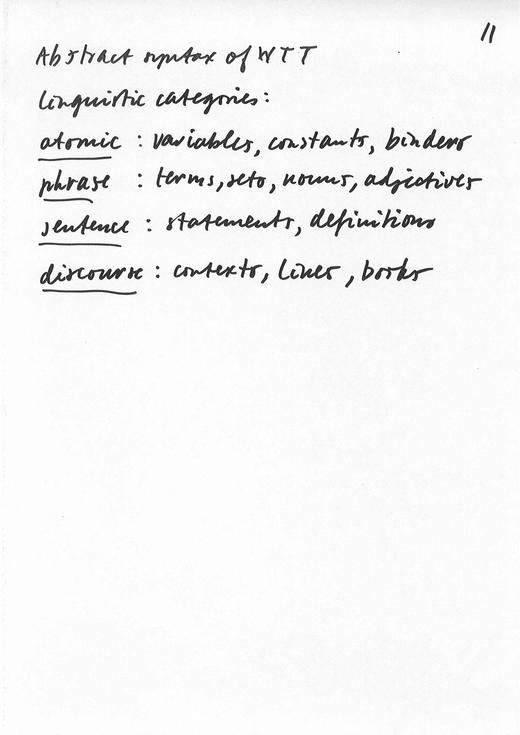 11
Abstract syntax of WTT
Linguistic categories:
atomic : variables, constants, binders
phrase : terms, sets, nouns, adjectives
sentence : statements, definitions
discourse : contexts, lines, books